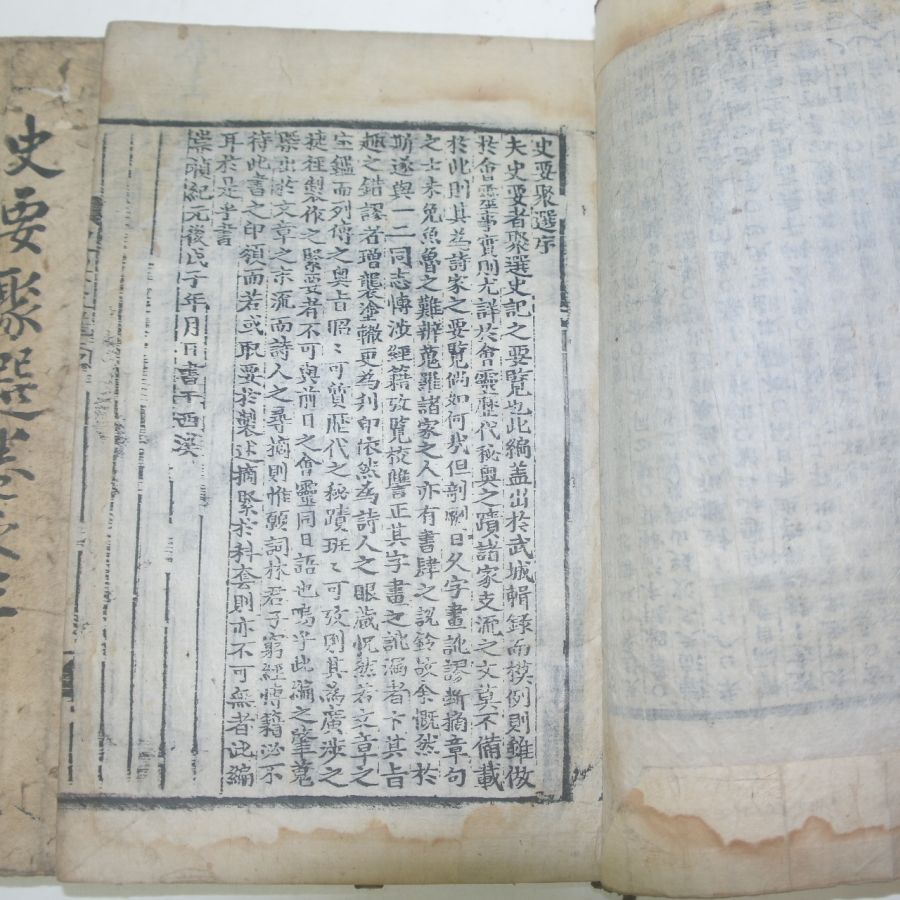 史要聚選序
夫史要者聚選史記之要覽也此編盖出於武城輯錄而模例則雖倣
於會靈事實則尤詳於會靈歷代秘奧之蹟諸家支流之文莫不備載
於此則其為詩家之要覽倘如何㢤但剞劂日久字畫訛謬斷摘章句
之士未免魚魯之難辨蒐羅諸家之人亦有書肆之說鈴故余慨然於
斯遂與一二同志愽涉經籍攷覧校讐正其字畫之訛漏者卞其旨
趣之錯謬者增襲塗轍更為刋印依然為詩人之眼藏怳然若文章之
宝鑑而列傳之奥旨昭〻可質歷代之秘蹟班〻可攷則其為廣涉之
捷徑製作之緊要者不可與前日之會靈同日語也嗚乎此編之肇蒐
槩出於文章之亦流而詩人之尋摘則惟願詞林君子窮經愽籍必不
待此書之印領而若或取要於製述摘緊於科套則亦不可無者此編
耳於是乎書
崇禎紀元後戊子年月日書于西溪
史要聚選卷之三